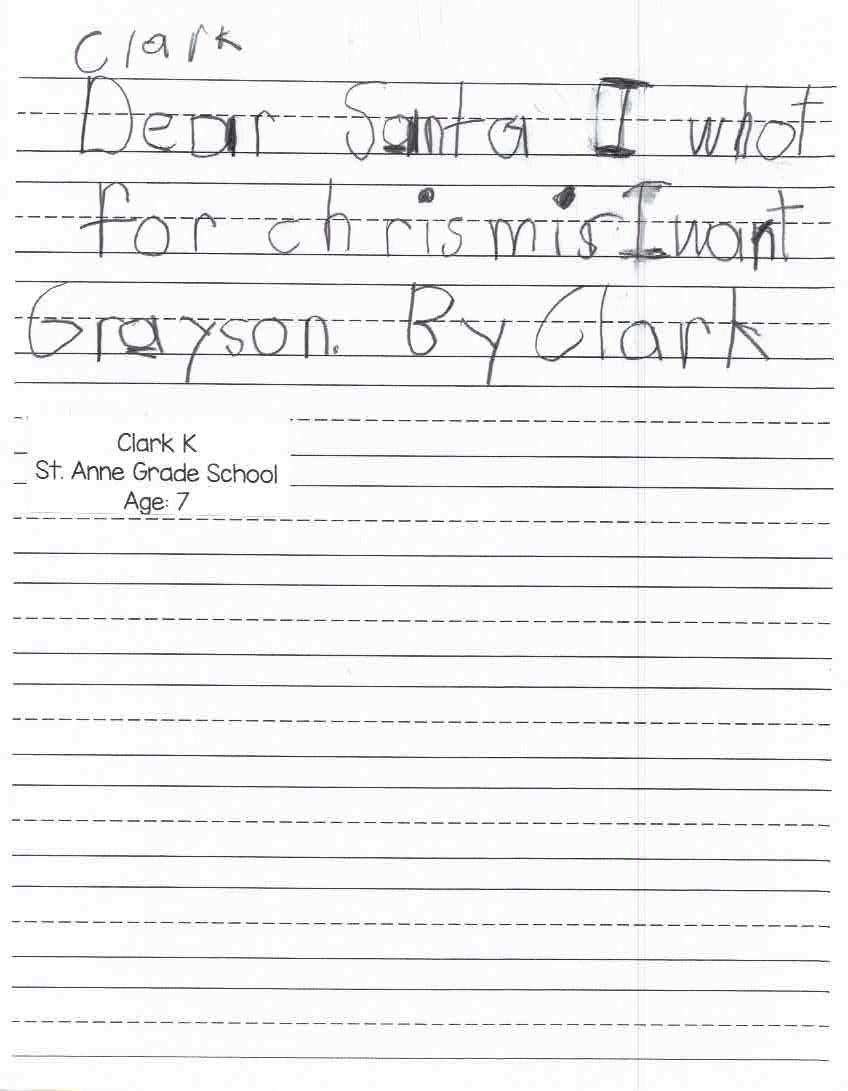 Clark
Dear Santa I whot
for chrismis I want
Grayson. By Clark
Clark K
St. Anne Grade School
Age: 7